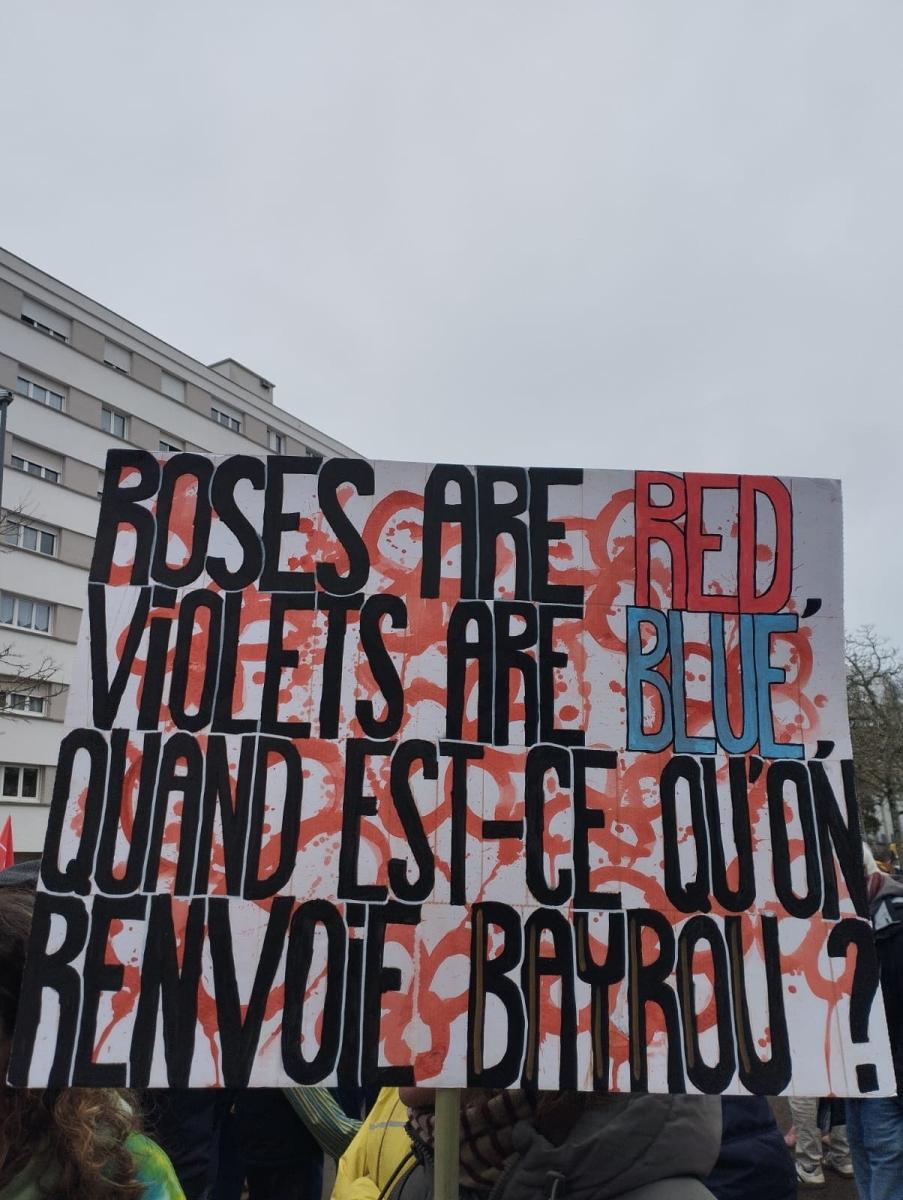 ROSES ARE RED,
ViOLETS ARE BLUE,
QUAND EST-CE QU'ON
RENVOiE BAYROU ?